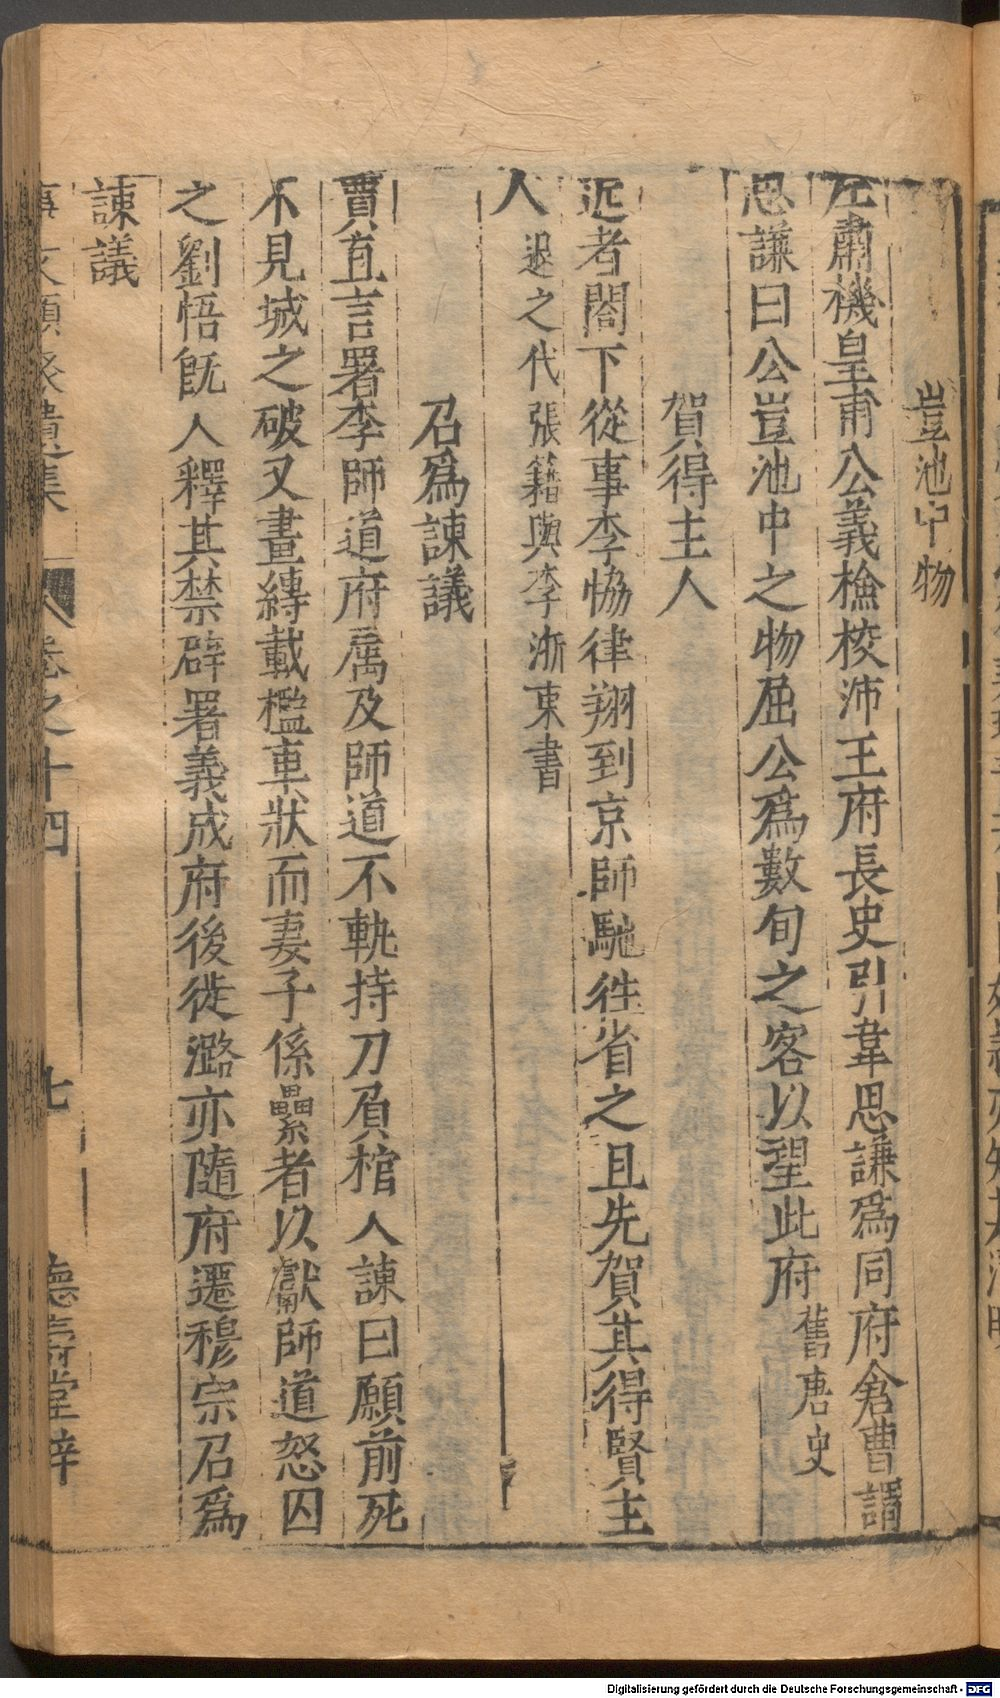 豈池中物
左肅機皇甫公義檢校沛王府長史引韋思謙爲同府倉曹謂
思謙曰公豈池中之物屈公爲數旬之客以望此府舊唐史
賀得主人
近者閤下從事李恊律翔到京師馳徃省之且先賀其得賢主
人退之代張籍與李浙東書
召爲諌議
賈直言署李師道府属及師道不軌持刀負棺入諌曰願前死
不見城之破又畫縛載檻車狀而妻子係纍者以獻師道怒囚
之劉悟旣入釋其禁辟署義成府後徙潞亦隨府遷穆宗召爲
諌議
事文類聚遺集 卷之十四 七 德壽堂梓
Digitalisierung gefördert durch die Deutsche Forschungsgemeinschaft - DFG